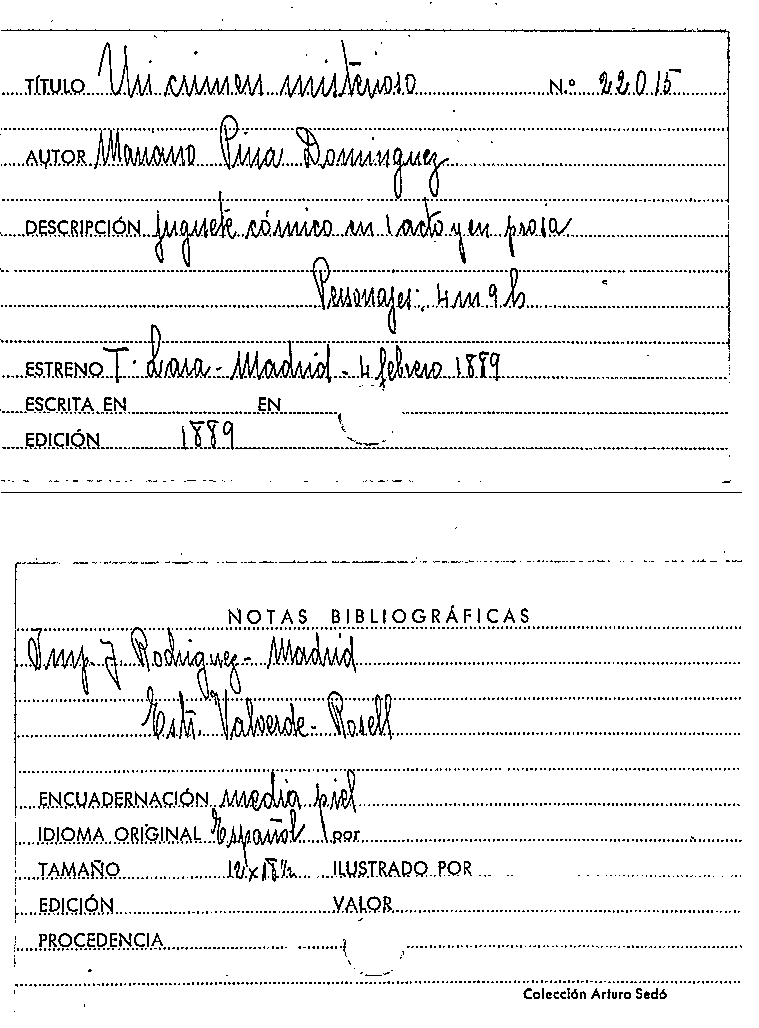 TÍTULO Un crimen misterioso N.º 22015
AUTOR Mariano Pina Dominguez
DESCRIPCIÓN juguete cómico en 1 acto y en prosa
Personajes: 4 m 9 h
ESTRENO T. Lara - Madrid - 4 febrero 1889
ESCRITA EN EN
EDICIÓN 1889
NOTAS BIBLIOGRÁFICAS
Imp. J. Rodriguez - Madrid
Estr. Valverde - Rosell
ENCUADERNACIÓN media piel
IDIOMA ORIGINAL Español por
TAMAÑO 12 x 18½ ILUSTRADO POR
EDICIÓN VALOR
PROCEDENCIA
Colección Arturo Sedó